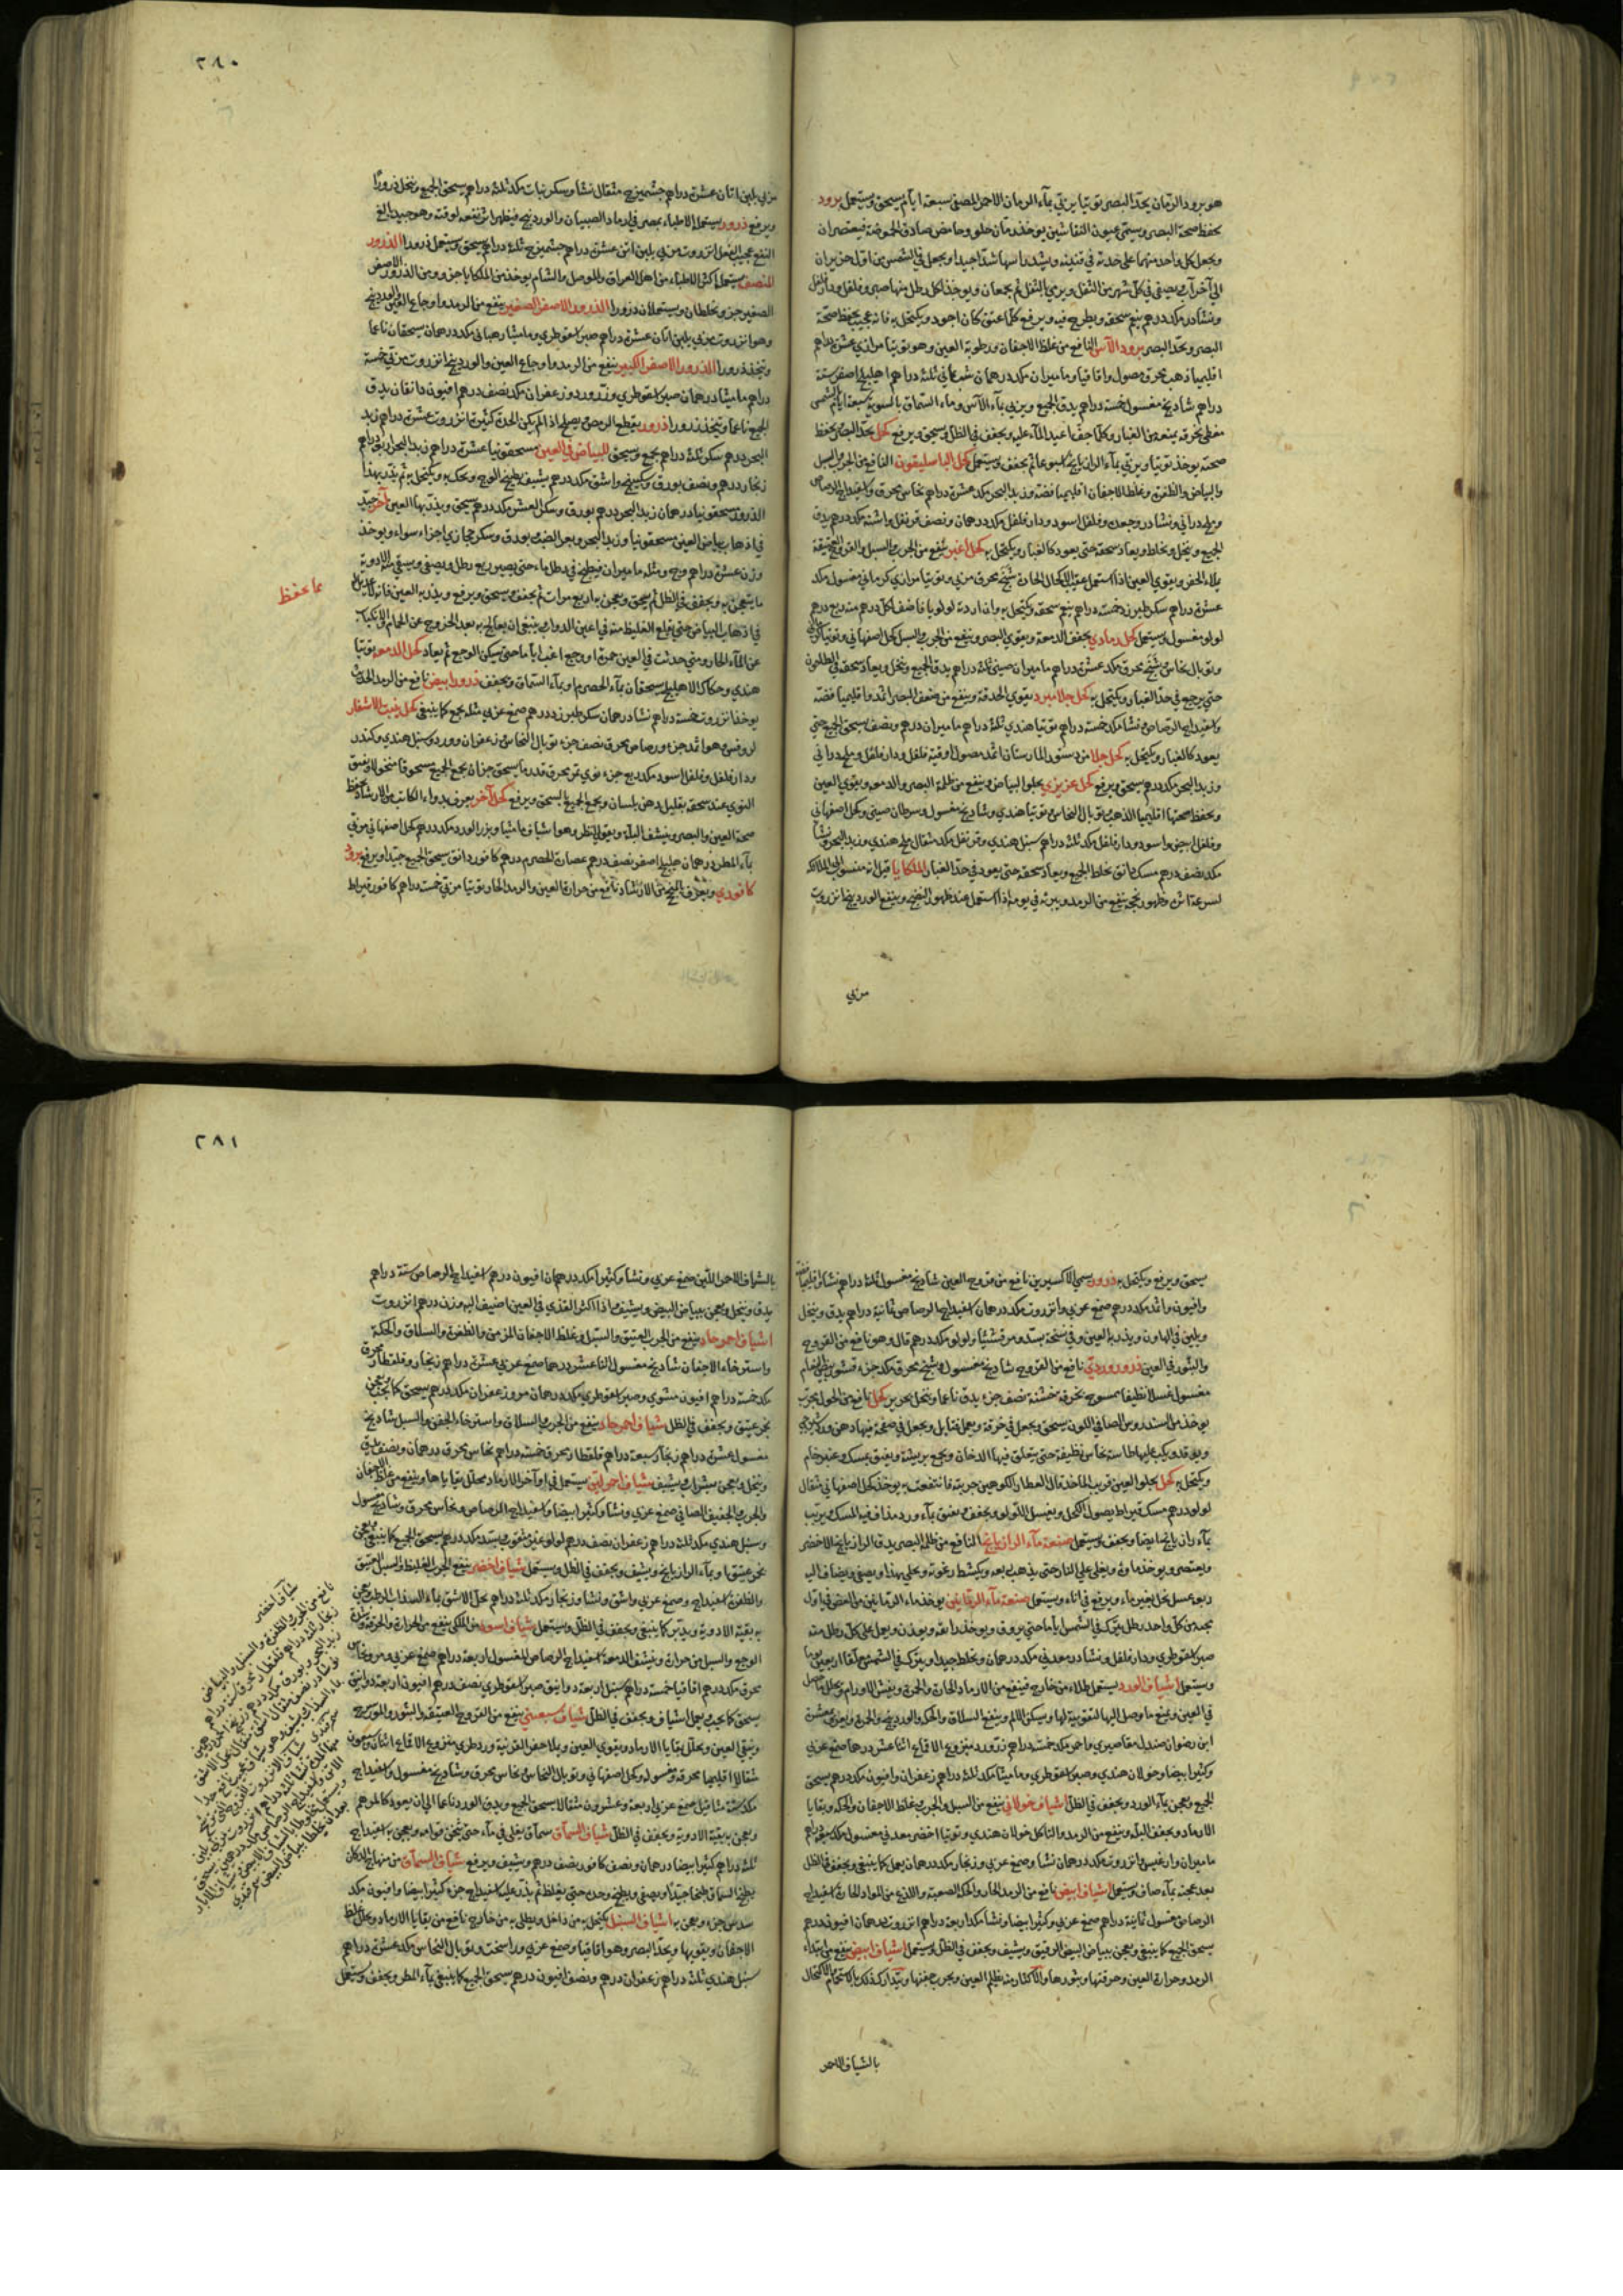 هو برود الرمان يحدّ البصر توتيا يربى بماء الرمان الاحمر المصفى سبعة ايام يسحق ويستعمل برود
يحفظ صحة البصر ويسمى عيون النقاشين يوخذ رمان حلو وحامض صادق الحموضة فيعتصران
ويجعل كل واحد منهما على حدته في قنينة ويشد راسها شدا جيدا ويجعل في الشمس من اول حزيران
الى آخر آب يصفى في كل شهر من الثفل ويرمى الثفل ثم يجمعان ويوخذ لكل رطل منها صبر وفلفل ودار فلفل
ونشادر مكد درهم ينعم سحقه ويطرح فيه ويرفع كلما عتق كان اجود ويكتحل به فانه عجيب يحفظ صحة
البصر ويحد البصر برود الآس النافع من غلظ الاجفان ورطوبة العين وهو توتيا مرازي عشرة دراهم
اقليميا ذهب محرق مصول واقاقيا وماميران مكد درهمان ثلثة دراهم اهليلج اصفر ستة
دراهم شادنج مغسول خمسة دراهم يدق الجميع ويربى بماء الآس وماء السماق بالسوية سبعة ايام
مغطى بخرقة يمنعه من الغبار وكلما جف اعيد الماء عليه ويجفف في الظل ويسحق ويرفع كحل يحد البصر ويحفظ
صحته يوخذ توتيا ويربى بماء الرازيانج اسبوعا ثم يجفف ويستعمل كحل الباسليقون النافع من الجرب والسبل
والبياض والظفرة وغلظ الاجفان اقليميا فضة وزبد البحر مكد عشرة دراهم نحاس محرق واسفيداج الرصاص
وملح دراني ونشادر وجعدة وفلفل اسود ودار فلفل مكد درهمان ونصف قرنفل واشنة مكد درهم يدق
الجميع وينخل ويخلط ويعاد سحقه حتى يعود كالغبار ويكتحل به كحل اغبر ينفع من الجرب والسبل والقروح العتيقة
يملاء الحفر ويقوي العين اذا استعمل عقيب الاكحال الحادة شنج محرق مربى وتوتيا مرازي كرماني مغسول مكد
عشرة دراهم سكر طبرزد خمسة دراهم ينعم سحقه ويكتحل به وان اردته لولويا فاضف لكل درهم منه ربع درهم
لولو مغسول ويستعمل كحل رمادي يجفف الدمعة ويقوي البصر وينفع من الجرب والسبل كحل اصفهاني وتوتيا
وتوبال نحاس شنج محرق مكد عشرة دراهم ماميران صيني ثلثة دراهم يدق الجميع وينخل ويعاد سحقه في
حتى يرجع في حد الغبار ويكتحل به كحل جلا مبرد يقوي الحدقة وينفع من ضعف البصر اثمد واقليميا فضة
واسفيداج الرصاص ونشا مكد خمسة دراهم توتيا هندي ثلثة دراهم ماميران درهم ونصف يسحق الجميع حتى
يعود كالغبار ويكتحل به كحل جلا من دستور المارستان اثمد مصول اوقية فلفل ودار فلفل وملح دراني
وزبد البحر مكد درهم يسحق ويرفع كحل عزيزي يجلو البياض وينفع من ظلمة البصر والدمعة ويقوي العين
ويحفظ صحتها اقليميا الذهب توبال النحاس توتيا هندي وشادنج مغسول وسرطان صيني وكحل اصفهاني
وفلفل ابيض واسود ودار فلفل مكد ثلثة دراهم سنبل هندي وقرنفل مكد مثقال ملح هندي وزبد البحر ونشا
مكد نصف درهم مسك دانق يخلط الجميع ويعاد سحقه حتى يعود في حد الغبار الملكايا قيل انه منسوب الى الملائكة
لسرعة اثره وظهور نجحه ينفع من الرمد ويبرئه في يومه اذا استعمل عند ظهور النضج وينفع الوردينج انزروت
مربى
٢٨٠
مربى بلبن اتان عشرة دراهم جشميزج مثقال نشا وسكر نبات مكد ثلثة دراهم يسحق الجميع وينخل ذرورا
ويرفع ذرور يستعمله الاطباء بمصر في ارماد الصبيان والوردينج فيظهر اثر نفعه لوقته وهو جيد الغ
النفع عجيب الفعل انزروت مربى بلبن اتن عشرة دراهم جشميزج ثلثة دراهم يسحق ويستعمل ذرورا الذرور
المنصف يستعمله اكثر الاطباء من اهل العراق والموصل والشام يوخذ من الملكايا جزو ومن الذرور الاصفر
الصغير جزو يخلطان ويستعملان ذرورا الذرور الاصفر الصغير ينفع من الرمد واوجاع العين والوردينج
وهو انزروت مربى بلبن اتان عشرة دراهم صبر اسقوطري وماميثا رهباني مكد درهمان يسحقان ناعما
ويتخذ ذرورا الذرور الاصفر الكبير ينفع من الرمد واوجاع العين والوردينج انزروت مربى خمسة
دراهم ماميثا درهمان صبر اسقوطري وزر ورد وزعفران مكد نصف درهم افيون دانقان يدق
الجميع ناعما ويتخذ ذرورا ذرور يقطع الرمص ويصلح اذا لم يكن الحدة كثيرة انزروت عشرة دراهم زبد
البحر درهم سكر ثلثة دراهم يجمع ويسحق للبياض في العين مسحقونيا عشرة دراهم زبد البحر اربعة دراهم
زنجار درهم ونصف بورق وسكبينج واشق مكد درهم يشيف بطبيخ الوج ويحك به ويكتحل به ثم يذر بهذا
الذرور مسحقونيا درهمان زبد البحر درهم بورق وسكر العشر مكد درهم يسحق ويذر بها العين آخر جيد
في اذهاب بياض العين مسحقونيا وزبد البحر وبعر الضب بورق وسكر حجازي اجزاء سواء ويوخذ
وزن عشرة دراهم وج ومثله ماميران فيطبخ في رطل ماء حتى يصير ربع رطل ويصفى ويسقى منه الادوية
ما ينعجن به ويجفف في الظل ثم يسحق ويعجن به اربع مرات ثم يجفف ويسحق ويرفع ويذر به العين فانه
في اذهاب البياض حتى يقلع الغليظ منه في اعين الدواب ينبغي ان يعالج به بعد الخروج عن الحمام
عن الماء الحار ومتى حدثت في العين حمرة او وجع اغب اياما حتى يسكن الوجع ثم يعاد كحل الدمعة توتيا
هندي وحكاك الاهليلج يسحقان بماء الحصرم او بماء السماق ويجفف ذرور ابيض نافع من الرمد الحادث
يوخذ انزروت خمسة دراهم نشا درهمان سكر طبرزد درهم صمغ عربي مثله يجمع كما ينبغي كحل ينبت الاشفار
لروفس وهو اثمد جزء ورصاص محرق نصف جزء توبال النحاس وزعفران وورد وسنبل هندي وكندر
ودار فلفل وفلفل اسود مكد ربع جزء نوى تمر محرق قدر ما يسحق جزآن يجمع الجميع مسحوقا منخولا ويسق
النوى عند سحقه بقليل دهن بلسان ويجمع الجميع بالسحق ويرفع كحل آخر يعرف بدواء الكاتب من الارشاد يحفظ
صحة العين والبصر وينشف البلة ويقوي النظر وهو اشياف ماميثا وبزر الورد مكد درهم كحل اصفهاني مربى
بماء المطر درهمان هليلج اصفر نصف درهم عصارة الحصرم درهم كافور دانق يسحق الجميع جيدا ويرفع برود
كافوري ويعرف من الارشاد نافع من حرارة العين والرمد الحار توتيا مربى خمسة دراهم كافور قيراط
مما يحفظ
يسحق ويرفع ويكتحل به ذرور يسمى الاكسيرين نافع من قروح العين شادنج مغسول ثلثة دراهم نشا واقليميا فضة
وافيون واثمد مكد درهم صمغ عربي وانزروت مكد درهمان اسفيداج الرصاص ثمانية دراهم يدق وينخل
ويلين في الهاون ويذر به العين وفي نسخة بسد ومرقشيثا ولولو مكد درهم قال وهو نافع من القروح
والبثور في العين ذرور وردي نافع من القروح شادنج مغسول وشنج محرق مكد جزء قشور بيض النعام
مغسول غسلا نظيفا ممسوح بخرقة خشنة نصف جزء يدق ناعما وينخل بحرير كحل نافع من الحول مجرب
يوخذ من السندروس الصافي اللون يسحق ويجعل في خرقة ويعمل فتايل ويجعل في صفحة فيها دهن ورد
ويوقد ويكب عليها طاسة نحاس نظيفة حتى يتعلق فيها الدخان ويجمع بريشة ويفتق بمسك وعنبر خام
ويكتحل به كحل يجلو العين قريب الماخذ قال العطار الكوهين جربته فانتفعت به يوخذ كحل اصفهاني مثقال
لولو درهم مسك قيراط يصول الكحل ويغسل اللولو ويجفف ويفتق بماء ورد مذاف فيه المسك ويرتب
بماء رازيانج ايضا ويجفف ويستعمل صنعة ماء الرازيانج النافع من ظلمة البصر يدق الرازيانج الاخضر
ويعتصر ويوخذ ماوه ويغلى على النار حتى يذهب ربعه ويكشط رغوته ويخلى يهدا ويصفى ويضاف اليه
ربعه عسل نحل بغير ماء ويرفع في اناء ويستعمل صنعة ماء الرمانين يوخذ ماء الرمانين من الغض في اوله
يجمد من كل واحد رطل يترك في الشمس اياما حتى يروق ويوخذ رائقه ويوزن ويعمل على كل رطل منه
صبر اسقوطري ودار فلفل ونشادر معدني مكد درهمان ويخلط جيدا ويترك في الشمس معلقا اربعين يوما
ويستعمل اشياف الورد يستعمل طلاء من خارج فينفع من الارماد الحارة والحمرة ويفش الاورام ويحلل ما حصل
في العين ويمنع ما وصل اليها لتقوية لها ويسكن الالم وينفع السلاق والحكة والوردينج والحمرة ويعزى
ابن رضوان صندل مقاصيري واحمر مكد خمسة دراهم زر ورد منزوع الاقماع اثنا عشر درهما صمغ عربي
وكثيرا بيضا وخولان هندي وصبر اسقوطري وماميثا مكد ثلثة دراهم زعفران وافيون مكد درهم يسحق
الجميع ويعجن بماء الورد ويجفف في الظل اشياف خولاني ينفع من السبل والجرب وغلظ الاجفان والحكة وبقايا
الارماد ويجفف البلة وينفع من الرمد والتاكل خولان هندي وتوتيا اخضر معدني مغسول مكد سبعة دراهم
ماميران وارغيس وانزروت مكد درهمان نشا وصمغ عربي وزنجار مكد درهمان يعمل كما ينبغي ويجفف في الظل
بعد عجنه بماء صاف ويستعمل اشياف ابيض نافع من الرمد الحار والحكة الصعبة واللذع من المواد الحارة اسفيداج
الرصاص مغسول ثمانية دراهم صمغ عربي وكثيرا بيضا ونشا مكد اربعة دراهم انزروت درهمان افيون درهم
يسحق الجميع كما ينبغي ويعجن ببياض البيض الرقيق ويشيف ويجفف في الظل ويستعمل اشياف ابيض ينفع من ابتداء
الرمد وحرارة العين وحرقتها وبثورها والاكثار منه يظلم العين ويجرب جفنها ويتدارك ذلك بالاستحمام والاكتحال
بالشياف الاحمر
٢٨١
بالشياف الاحمر اللين صمغ عربي ونشا وكثيرا مكد درهمان افيون درهم اسفيداج الرصاص ستة دراهم
يدق وينخل ويعجن ببياض البيض ويشيف اذا اكثر القذى في العين اضيف اليه وزن درهم انزروت
اشياف احمر حاد ينفع من الجرب العتيق والسبل وغلظ الاجفان المزمن والظفرة والسلاق والحكة
واسترخاء الاجفان شادنج مغسول اثنا عشر درهما صمغ عربي عشرة دراهم زنجار وقلقطار محرق
مكد خمسة دراهم افيون مشوي وصبر اسقوطري مكد درهمان مر وزعفران مكد درهم يسحق كما يجب ويعجن
بخمر عتيق ويجفف في الظل شياف احمر حاد ينفع من الجرب والسلاق واسترخاء الجفن والسبل شادنج
مغسول عشرة دراهم زنجار سبعة دراهم قلقطار محرق خمسة دراهم نحاس محرق درهمان ونصف يدق
وينخل ويعجن بشراب ويشيف شياف احمر لين يستعمل في اواخر الارماد محلل بقاياها وينفع من غلظ الاجفان
والجرب الخفيف الصافي صمغ عربي ونشا وكثيرا بيضا واسفيداج الرصاص ونحاس محرق وشادنج مغسول
وسنبل هندي مكد ثلثة دراهم زعفران نصف درهم لولو غير مثقوب بسد مكد درهم يسحق الجميع كما ينبغي ويعجن
بخمر عتيق او بماء الرازيانج ويشيف ويجفف في الظل ويستعمل شياف اخضر ينفع الجرب الغليظ والسبل العتيق
والظفرة اسفيداج وصمغ عربي واشق ونشا وزنجار مكد ثلثة دراهم يحل الاشق بماء السذاب الرطب ويعجن
به بقية الادوية ويدبر كما ينبغي ويجفف في الظل ويستعمل شياف اسود من الملكي ينفع من الحرارة والحرقة
الوجع والسبل من حرارة وينشف الدمعة اسفيداج الرصاص المغسول اربعة دراهم صمغ عربي ومر ونحاس
محرق مكد درهم اقاقيا خمسة دراهم سنبل اربعة دوانيق صبر اسقوطري نصف درهم افيون اربعة دوانيق
يسحق كما يجب يعمل اشياف ويجفف في الظل شياف سبعيني ينفع من القروح العتيقة والبثور والمورسرج
وينقي العين ويحلل بقايا الارماد ويقوي العين ويملا حفر القرنية ورد طري منزوع الاقماع اثنان وسبعون
مثقالا اقليميا محرقة مغسولة وكحل اصفهاني وتوبال النحاس نحاس محرق وشادنج مغسول واسفيداج
مكد ستة مثاقيل صمغ عربي اربعة وعشرون مثقالا يسحق الجميع ويدق الورد ناعما الى ان يعود كالمرهم
ويعجن به بقية الادوية ويجفف في الظل شياف السماق سماق يغلى في ماء حتى يثخن قوامه ويعجن به اسفيداج
ثلثة دراهم كثيرا بيضا درهمان ونصف كافور نصف درهم ويشيف ويرفع شياف السماق من منهاج الدكان
يطبخ السماق طبخا جيدا ويصفى ويطبخ وحده حتى يغلظ ثم يذر عليه اسفيداج جزء كثيرا بيضا وافيون مكد
سدس جزء ويعجن به اشياف السنبل يكتحل به من داخل ويطلى به من خارج نافع من بقايا الارماد ويحلل غلظ
الاجفان ويقويها ويحد البصر وهو اقاقيا وصمغ عربي وراسخت وتوبال النحاس مكد عشرة دراهم
سنبل هندي ثلثة دراهم زعفران درهم ونصف افيون درهم يسحق الجميع كما ينبغي بماء المطر ويجفف ويستعمل
شياف اخضر
نافع من الجرب والظفرة والسبل والبياض